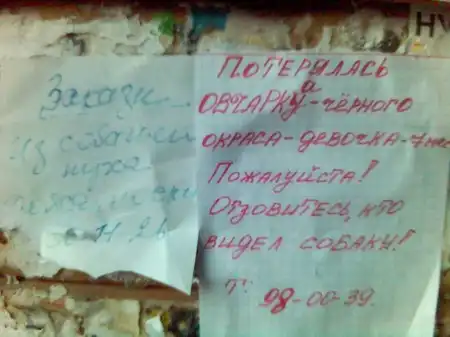 Закази
из собачей
пуха
ПОТЕРЯЛАСЬ
ОВЧАРКУа-ЧЁРНОГО
ОКРАСА-ДЕВОЧКА-7мес
Пожалуйста!
Отзовитесь, кто
видел собаку!
т. 98-00-39.